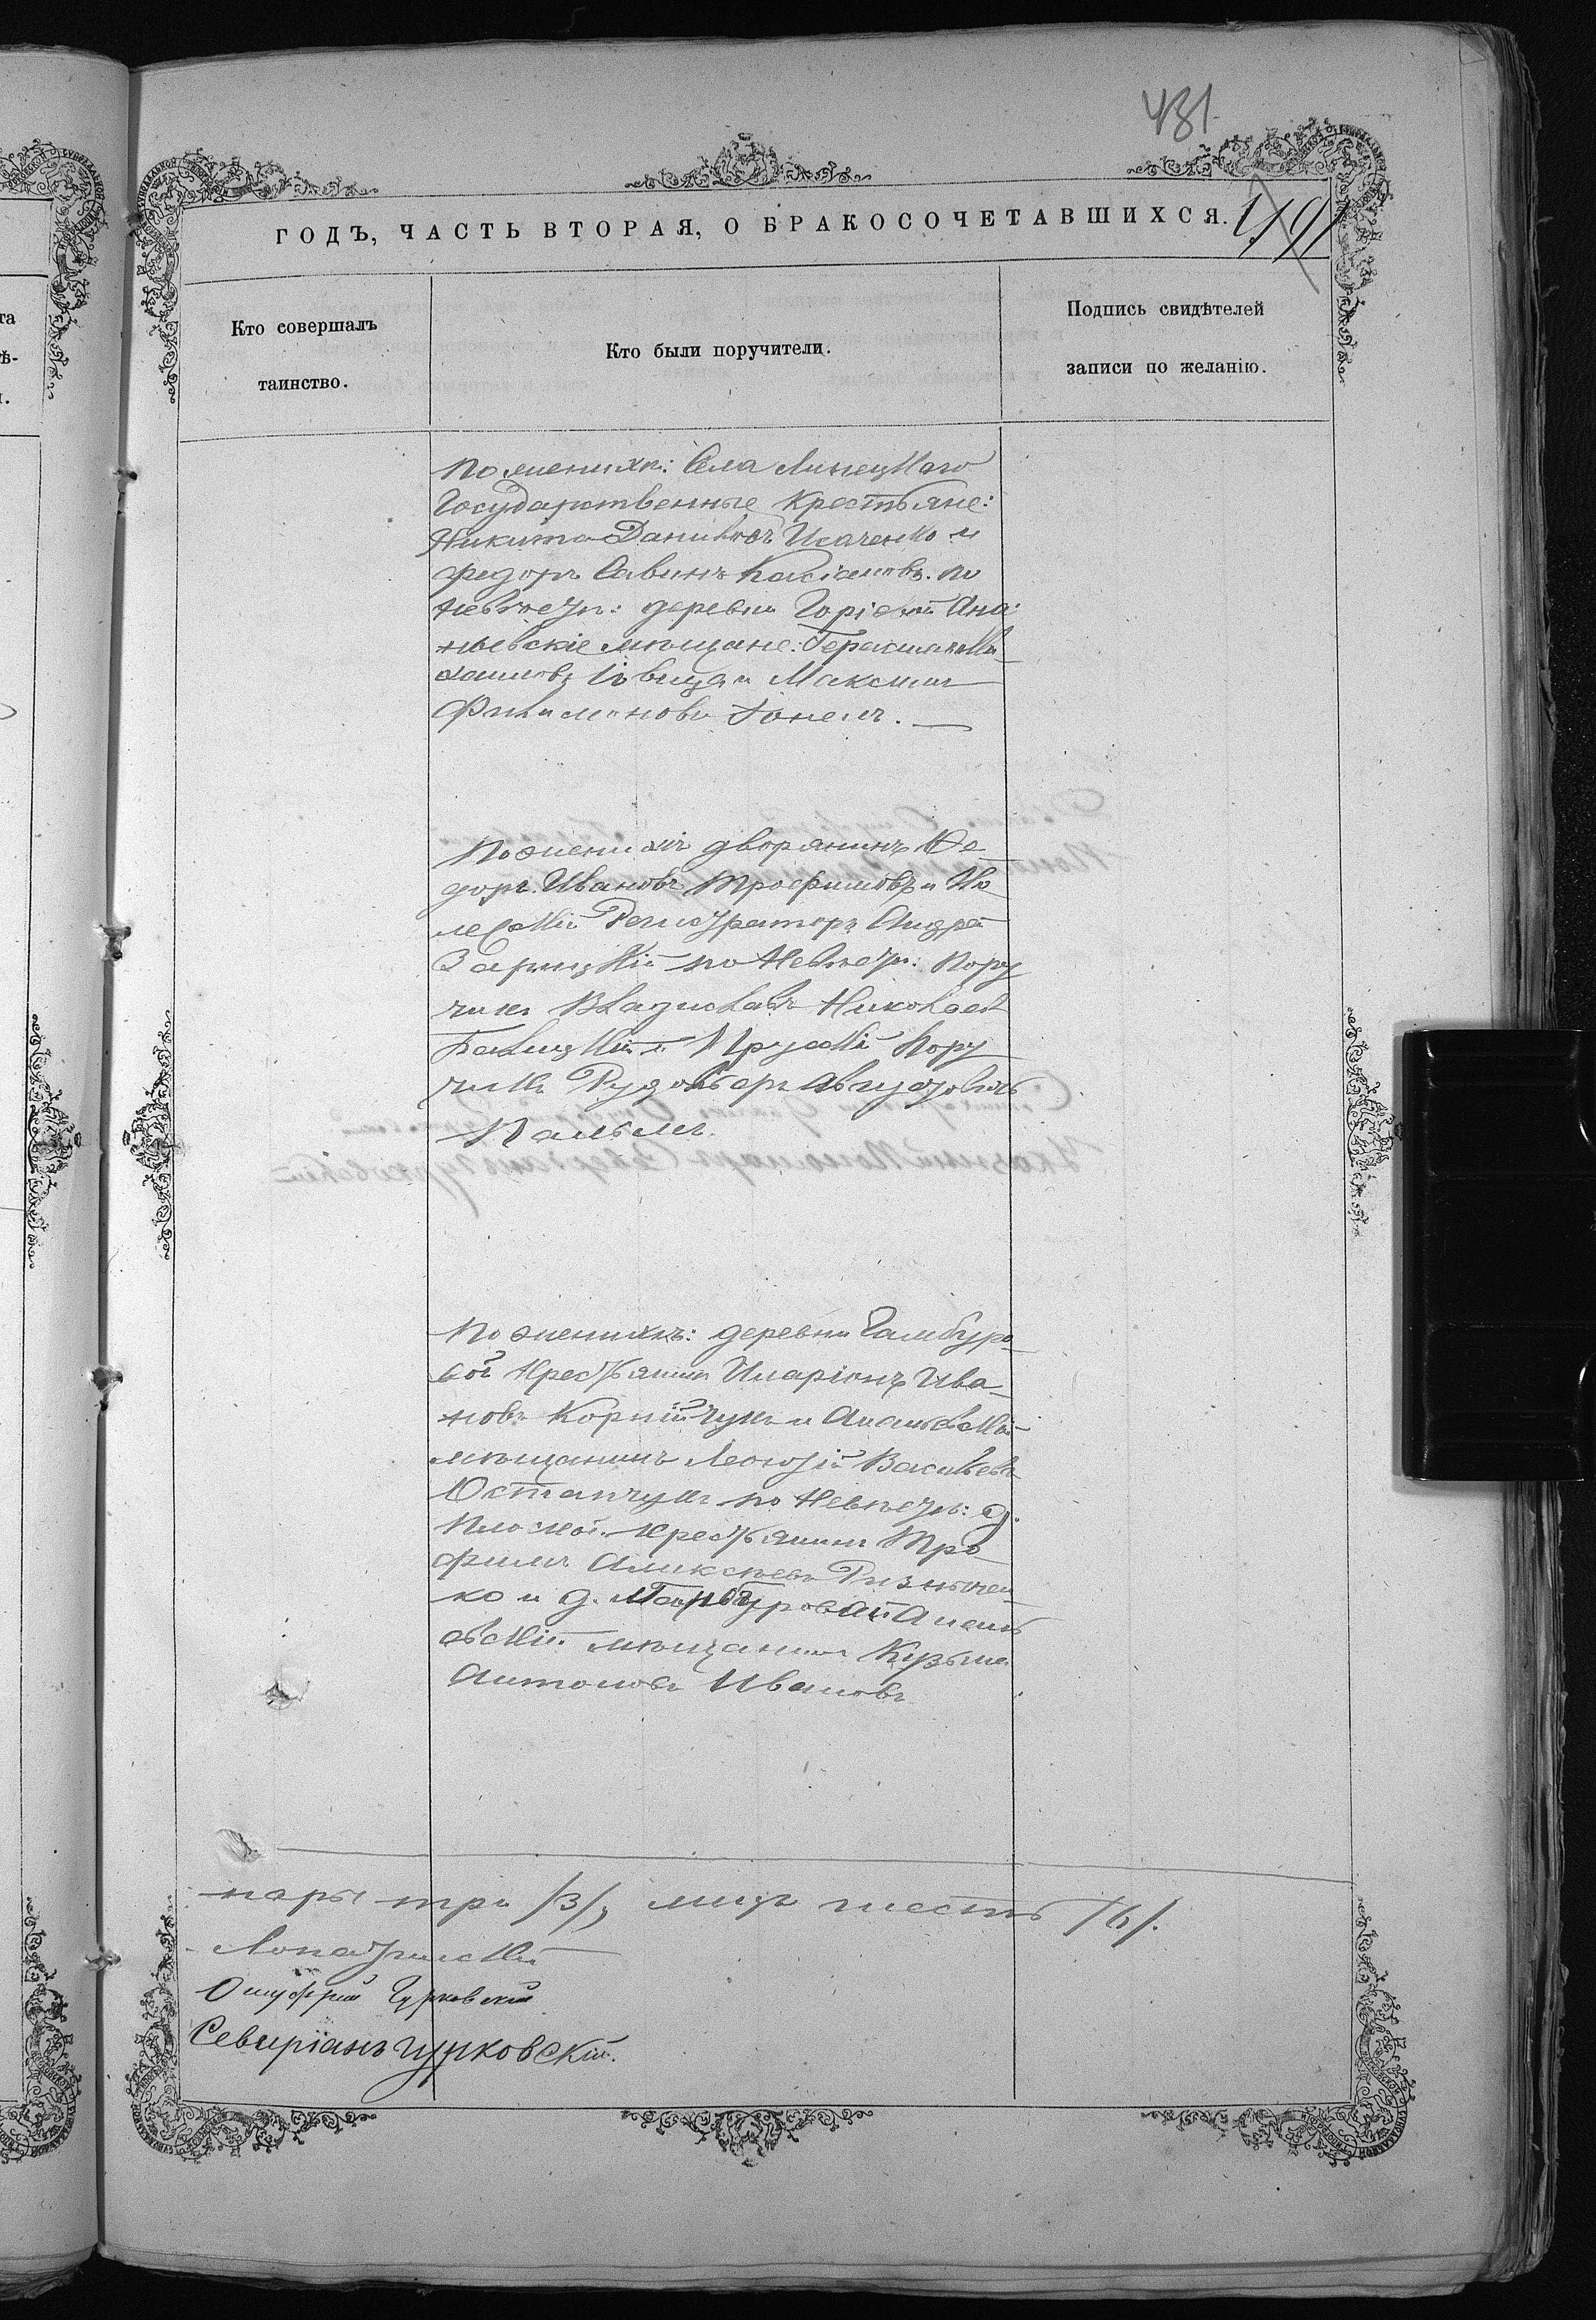 431
ГОДЪ, ЧАСТЬ ВТОРАЯ, О БРАКОСОЧЕТАВШИХСЯ.
Кто совершалъ
таинство.
Кто были поручители.
Подпись свидѣтелей
записи по желанію.
По женихѣ: Села Липецкаго
Государственные Крестьяне:
Никита Даниловъ Исаченко и
Федоръ Савинъ Касіановъ. по
невѣстѣ: деревни Ана
ньевскіе мѣщане: Герасимъ Ми
хаиловъ и Максимъ
Филимоновъ
По женихѣ дворянинъ Ѳе
доръ Ивановъ Трофимовъ и Ко
лежскій Регистраторъ Андрей
Зарицкій по Невѣстѣ: Пору
чикъ Владиславъ Николаевъ
и Прускій Пору
чикъ Рудольфъ Августовичъ
Пальмъ.
По женихѣ: деревни Гамбуро
вой Крестьянинъ Иларіонъ Ива
новъ Корнійчукъ и Ананьевскій
мѣщанинъ Леонтій Васильевъ
Остапчукъ по Невѣстѣ: д.
Плоской крестьянинъ Тро
фимъ Алексѣевъ
ко и д. Гамбуровой Анань
евскій мѣщанинъ Кузьма
Антоновъ Ивановъ
пары три /3/, лицъ шесть /6/.
Лопатинскій
Онуфрій Чурковскій
Северіанъ Чурковскій.